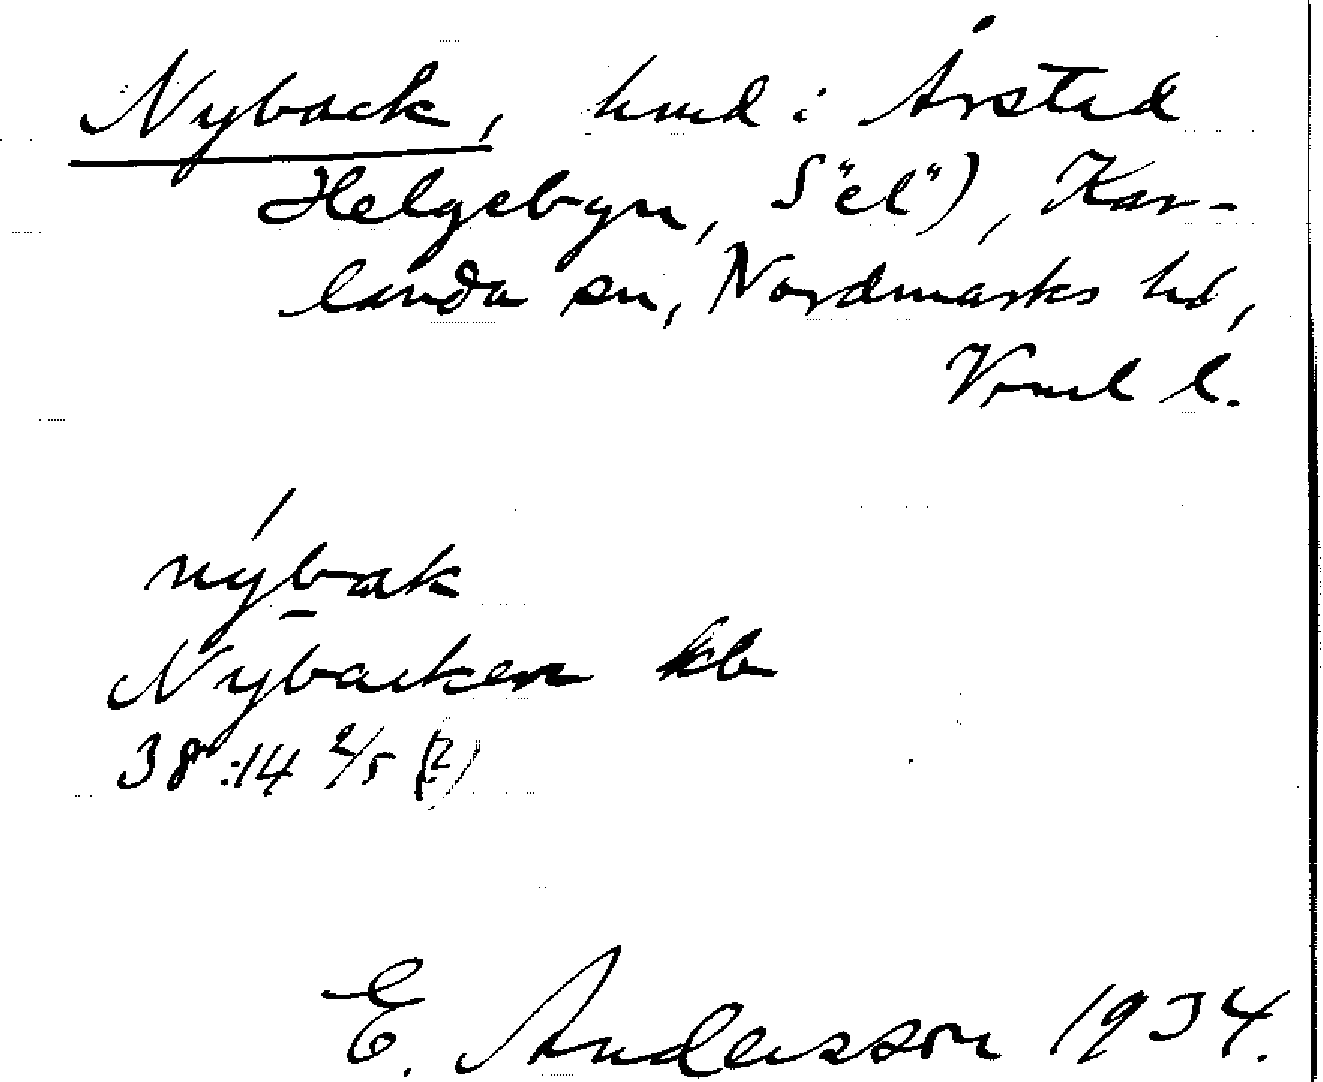 Nyback, hmd i Årsted
Helgebyn, S "el"), Kar-
landa sn, Nordmarks hd,
Vrml l.
nýbak
Nybacken kb
38:14 2/5 (?)
E. Andersson 1934.